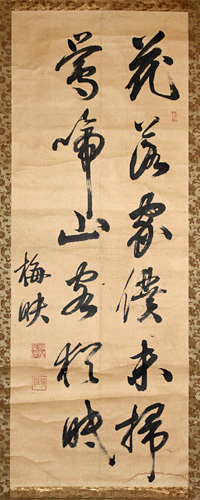 花落家僮未掃
鶯啼山客猶眠
梅映